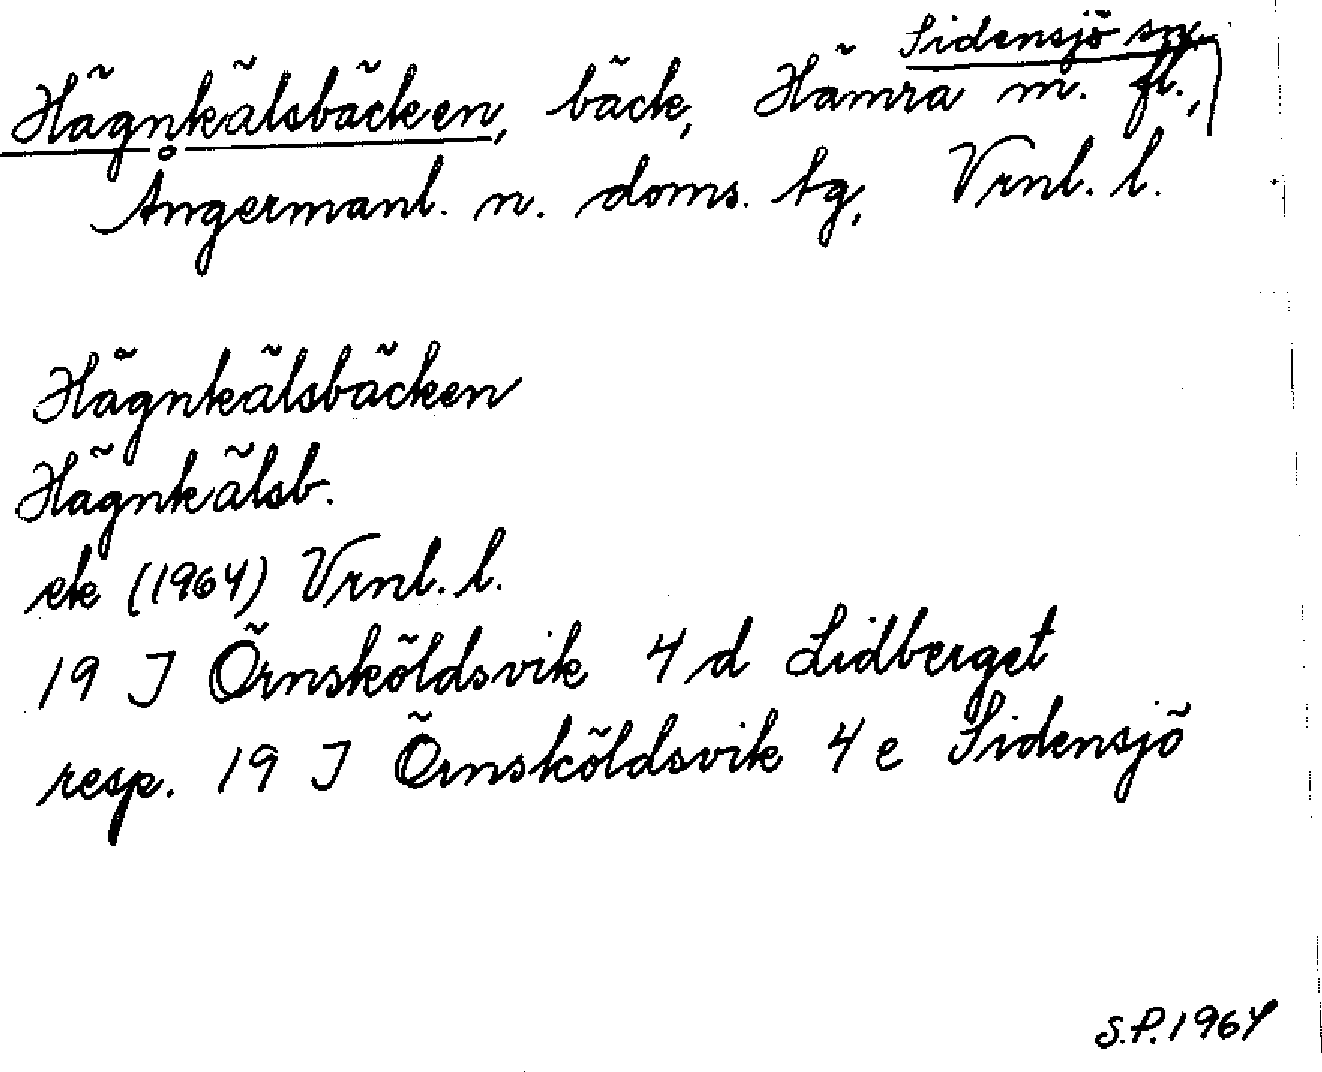 Sidensjö sn,
Hägnkälsbäcken, bäck, Hämra m. fl.,
Ångermanl. n. doms. tg, Vrnl. l.
Hägnkälsbäcken
Hägnkälsb.
ek (1964) Vrnl. l.
19 J Örnsköldsvik 4 d Lidberget
resp. 19 J Örnsköldsvik 4 e Sidensjö
S.P. 1964